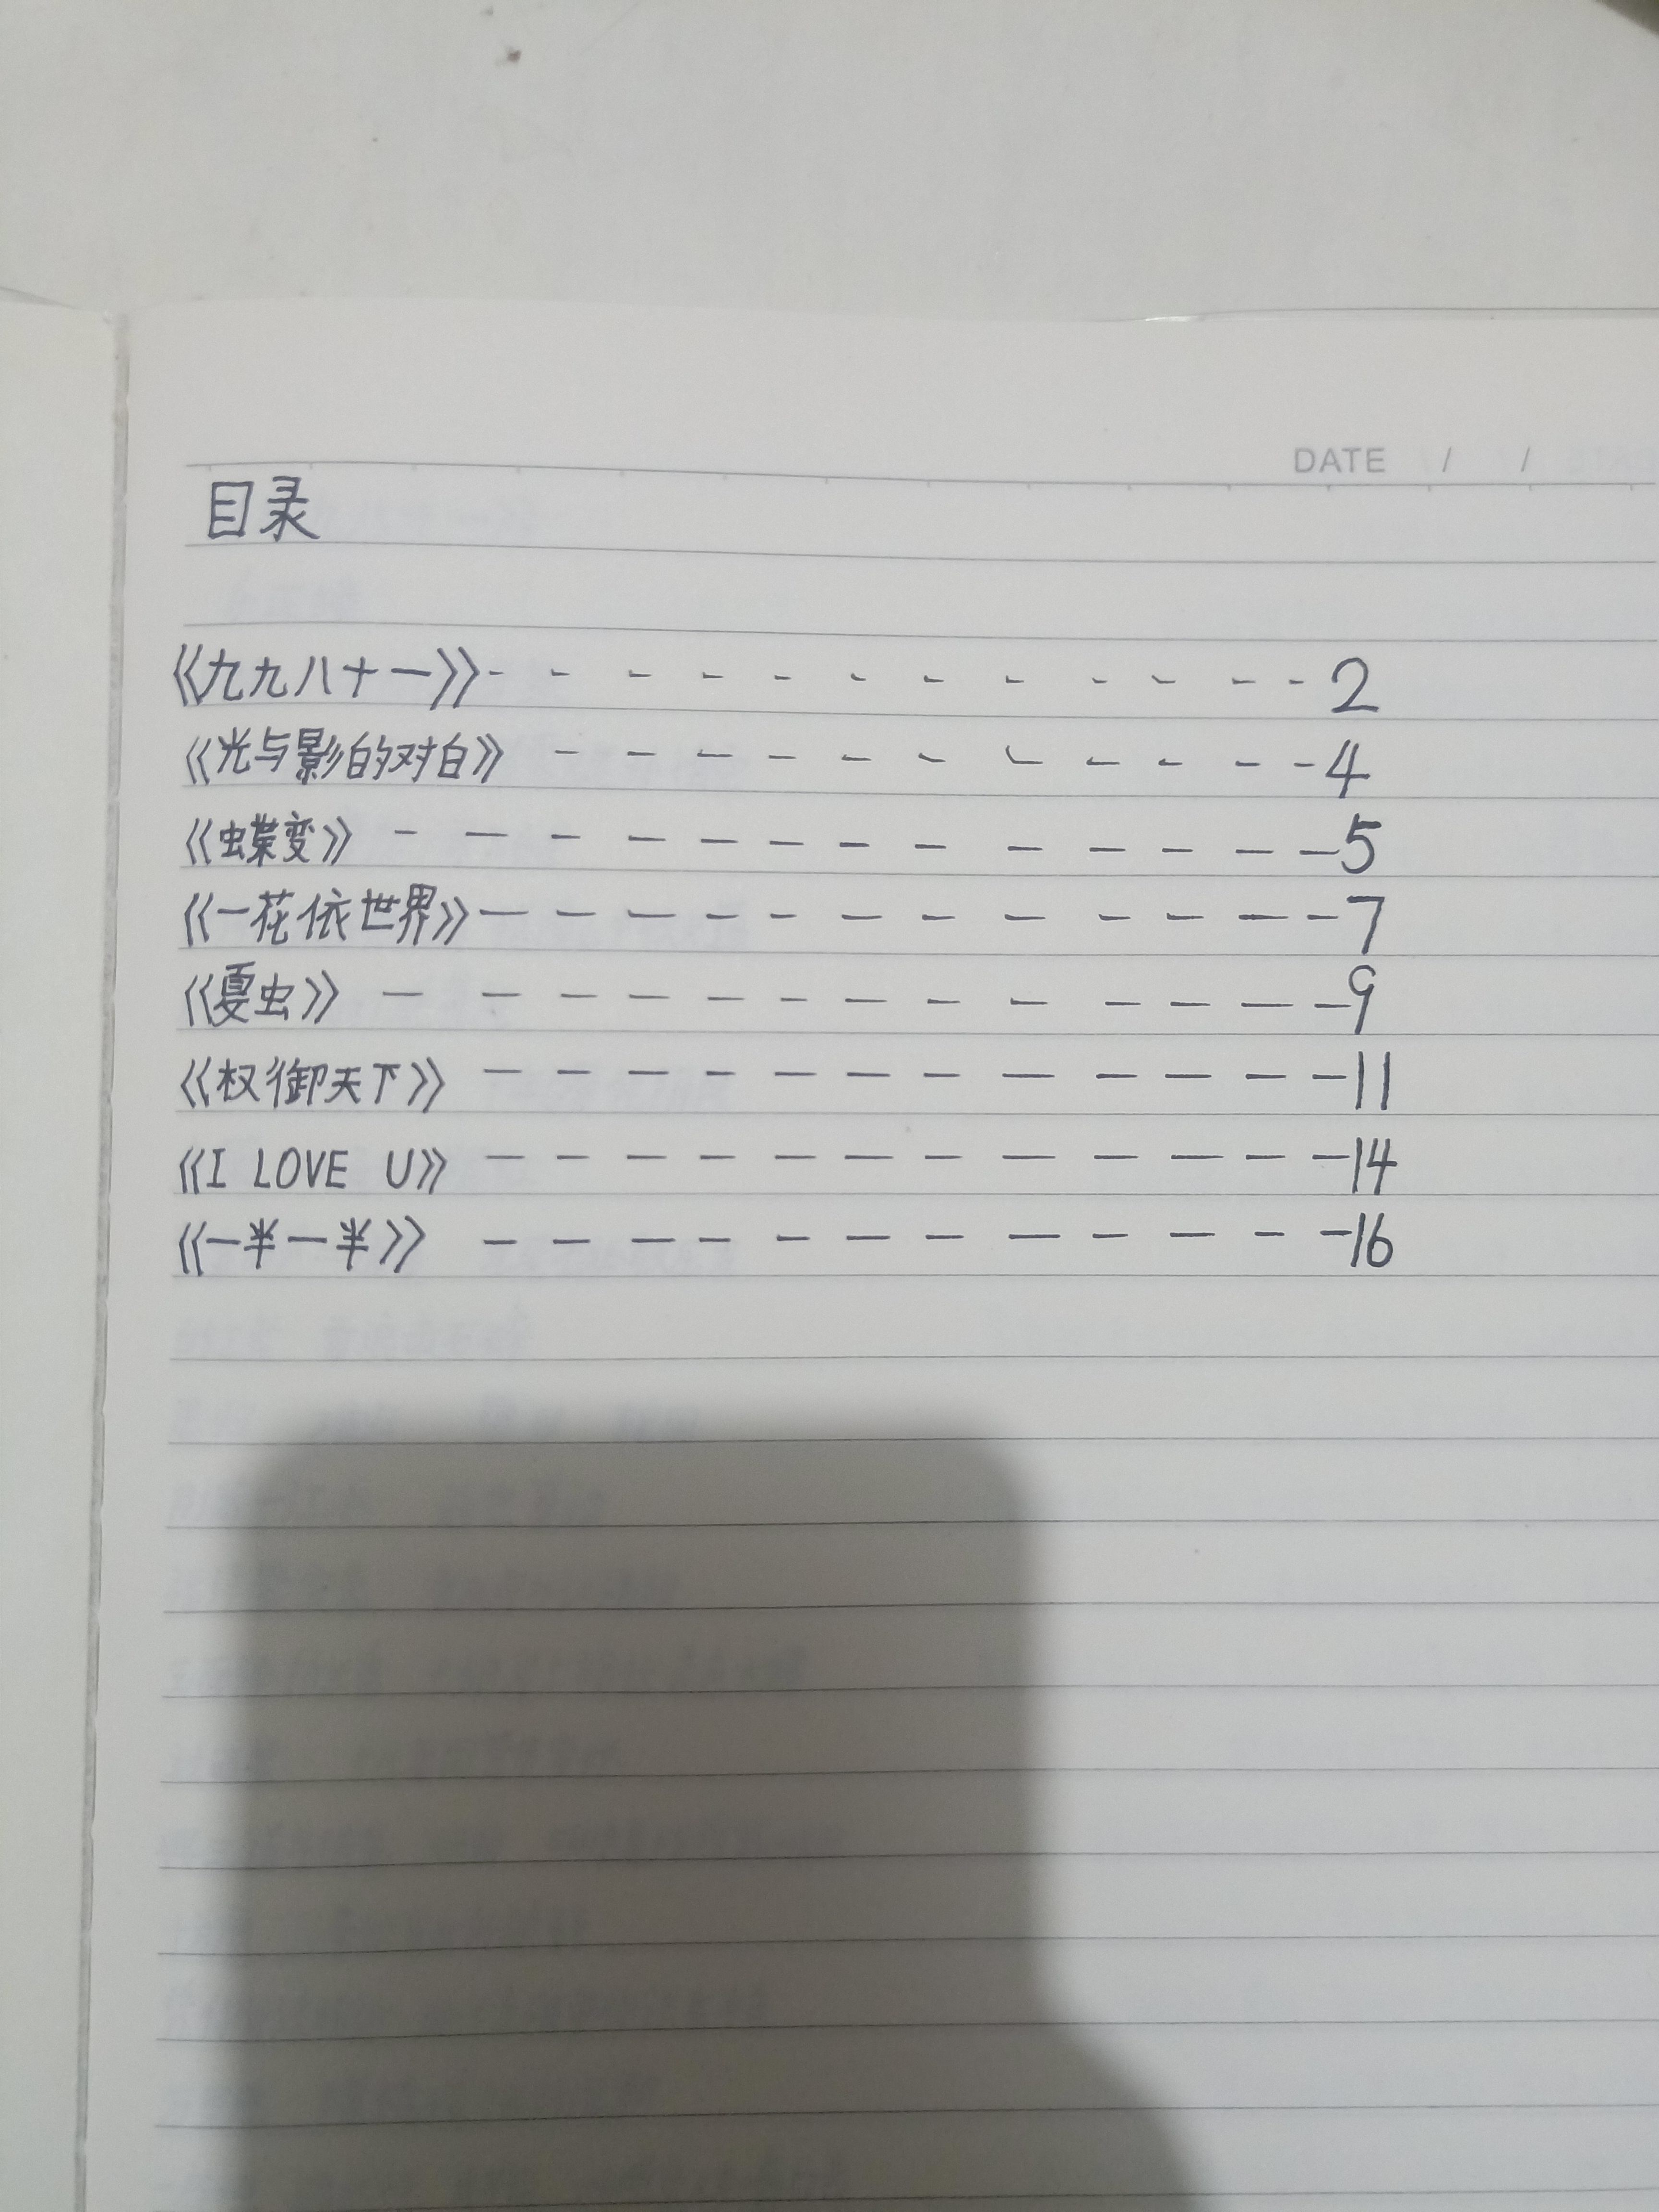 DATE / /
目录
《九九八十一》- - - - - - - - - - - -2
《光与影的对白》- - - - - - - - - - -4
《蝶变》- - - - - - - - - - - - -5
《一花依世界》- - - - - - - - - - - -7
《夏虫》- - - - - - - - - - - - -9
《权御天下》- - - - - - - - - - - -11
《I LOVE U》- - - - - - - - - - - -14
《一半一半》- - - - - - - - - - - -16